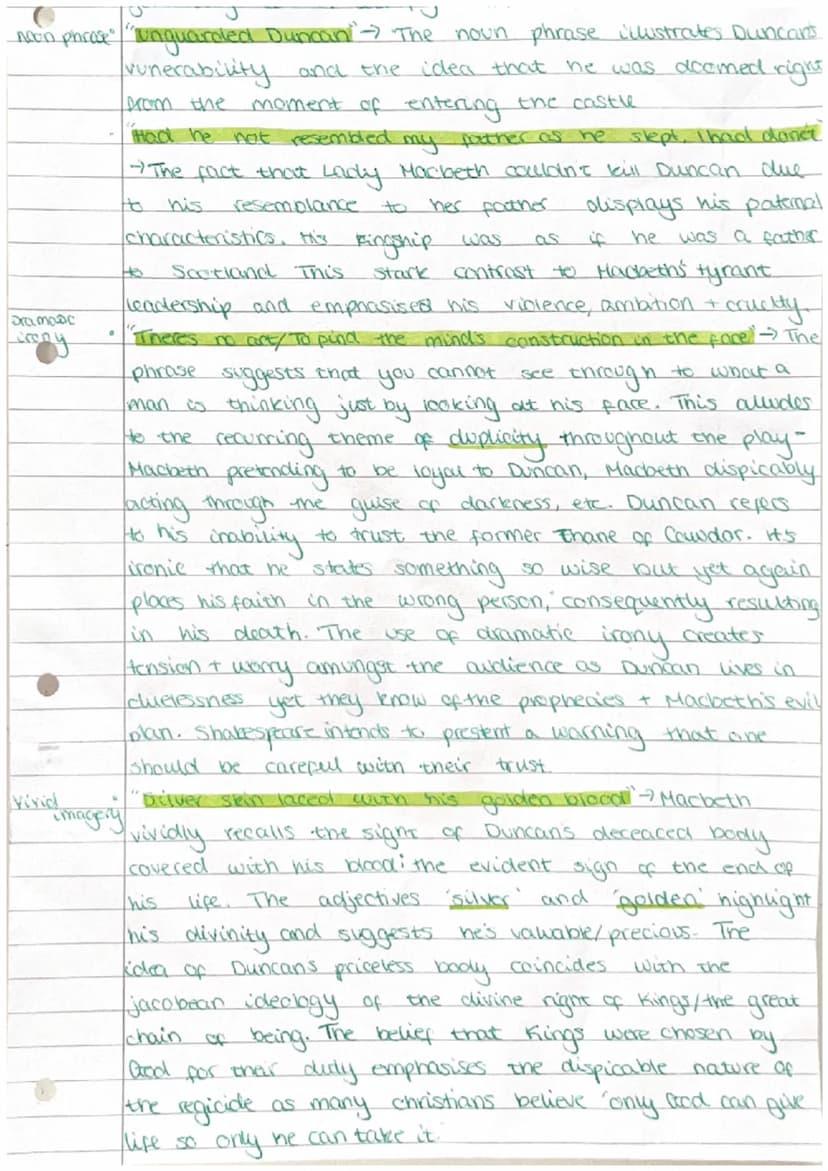 noun phrase• "Unguarded Duncan" → The noun phrase illustrates Duncan's
vunerability and the idea that he was doomed right
from the moment of entering the castle
• "Had he not resembled my father as he slept, I had done't"
→ The fact that Lady Macbeth couldn't kill Duncan due
to his resemblance to her father displays his paternal
characteristics. His Kingship was as if he was a father
to Scotland This stark contrast to Macbeth's tyrant
leadership and emphasises his violence, ambition + cruelty.
Dramatic
irony • "There's no art/ To find the mind's construction in the face" → The
phrase suggests that you cannot see through to what a
man is thinking just by looking at his face. This alludes
to the recurring theme of duplicity throughout the play-
Macbeth pretending to be loyal to Duncan, Macbeth dispicably
acting through the guise of darkness, etc. Duncan refers
to his inability to trust the former Thane of Cawdor. It's
ironic that he states something so wise but yet again
places his faith in the wrong person, consequently resulting
in his death. The use of dramatic irony creates
tension + worry amongst the audience as Duncan lives in
cluelessness yet they know of the prophecies + Macbeth's evil
plan. Shakespeare intends to present a warning that one
should be careful with their trust.
vivid • "Silver skin laced with his golden blood" → Macbeth
imagery vividly recalls the sight of Duncan's deceaced body
covered with his blood: the evident sign of the end of
his life. The adjectives 'silver' and 'golden' highlight
his divinity and suggests he's valuable/precious. The
idea of Duncan's priceless body coincides with the
jacobean ideology of the divine right of Kings/the great
chain of being. The belief that Kings were chosen by
God for their duty emphasises the dispicable nature of
the regicide as many christians believe 'only God can give
life so only he can take it.'